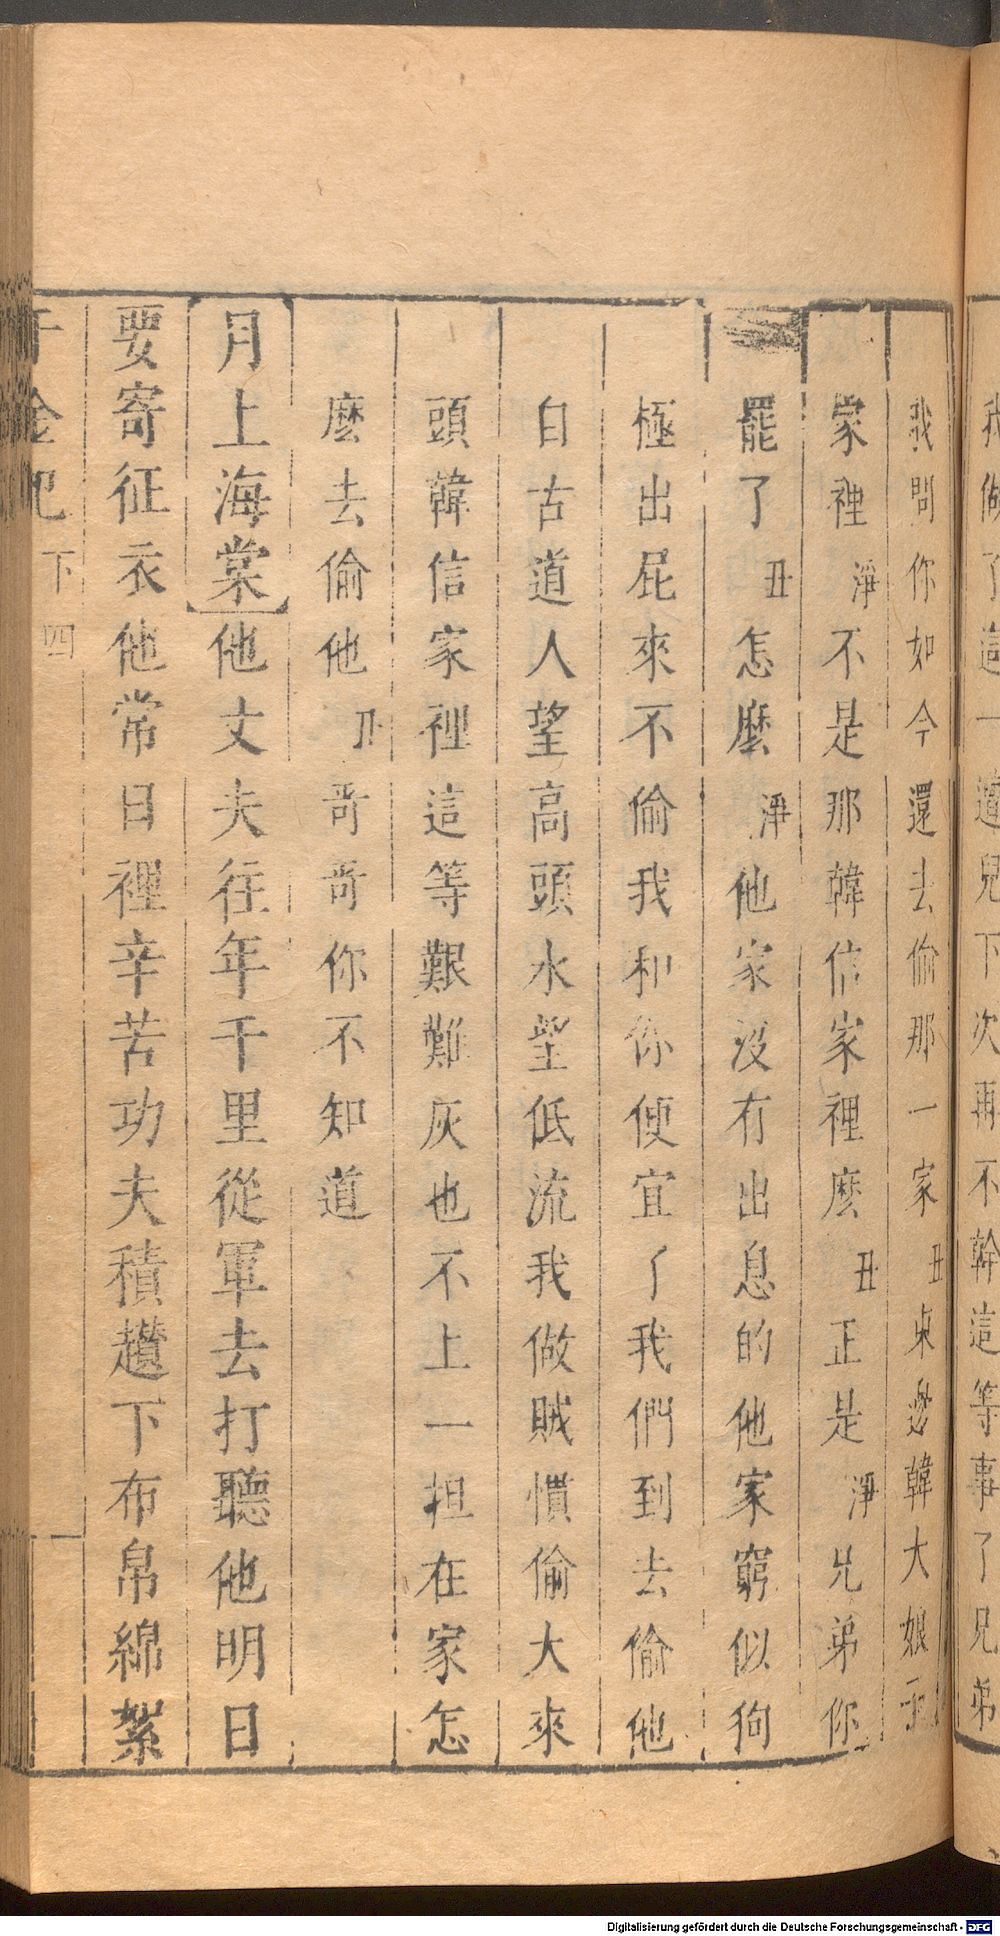 我做了這一遭兒下次再不幹這等事了兄弟
我問你如今還去偷那一家丑東𨕖韓大娘子
家裡淨不是那韓信家裡麽丑正是淨兄弟你
罷了丑怎麽淨他家沒有出息的他家窮似狗
極出屁來不偷我和你便宜了我們到去偷他
自古道人望高頭水望低流我做賊慣偷大來
頭韓信家裡這等艱難灰也不上一担在家怎
麽去偷他丑哥哥你不知道
月上海棠他丈夫往年千里從軍去打聽他明日
要寄征衣他常日裡辛苦功夫積趲下布帛綿絮
千金記 下 四
Digitalisierung gefördert durch die Deutsche Forschungsgemeinschaft - DFG